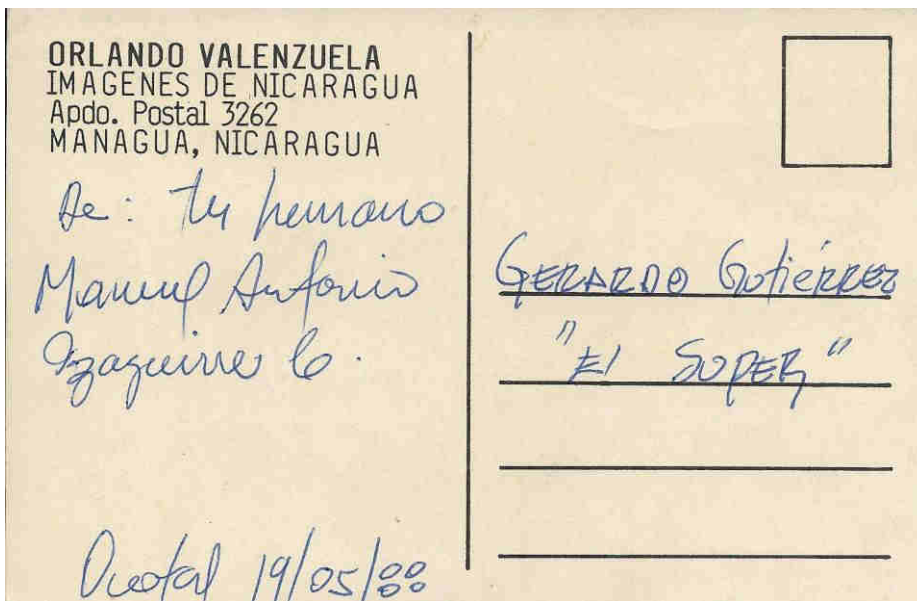 ORLANDO VALENZUELA
IMAGENES DE NICARAGUA
Apdo. Postal 3262
MANAGUA, NICARAGUA
De: tu hermano
Manuel Antonio
Yzaguirre C.
Ocotal 19/05/88
GERARDO Gutiérrez
"El SUPER"